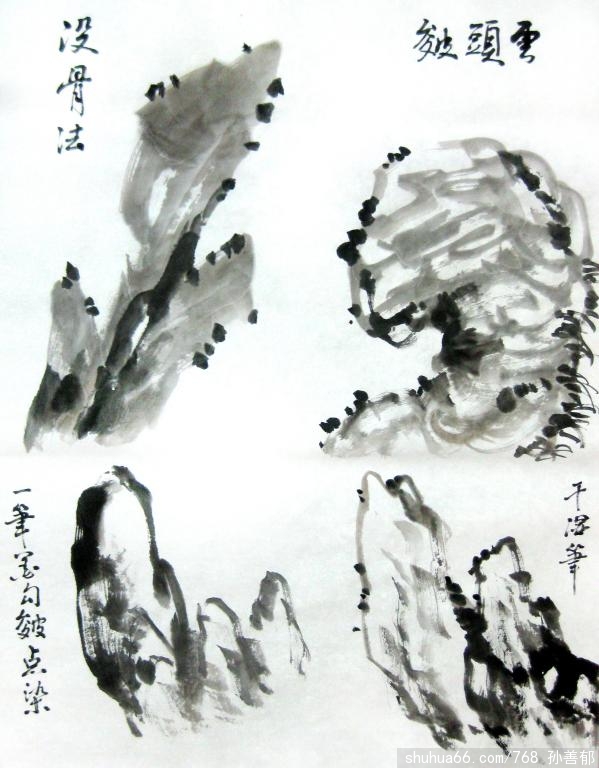 雲頭皴
没骨法
干湿筆
一筆墨勾皴点染
shuhua66.com/768 孙善郁